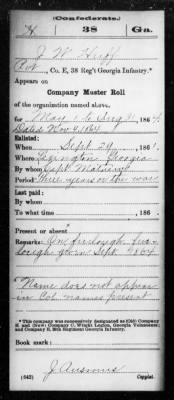 (Confederate.)
H 38 Ga.
J W Huff
Pvt, Co. E, 38 Reg't Georgia Infantry.*
Appears on
Company Muster Roll
of the organization named above,
for May 1 to Aug 31, 1864.
Dated Nov 4, 1864
Enlisted:
When Sept 29, 1861.
Where Georgia
By whom Capt
Period three years or the war
Last paid:
By whom
To what time , 186 .
Present or absent
Remarks: On furlough fur-
lough given Sept 1864
Name does not appear
in Col. names present
*This company was successively designated as (Old) Company
H. and (New) Company C, Wright Legion, Georgia Volunteers;
and Company E, 38th Regiment Georgia Infantry.
Book mark:
(642) Copyist.